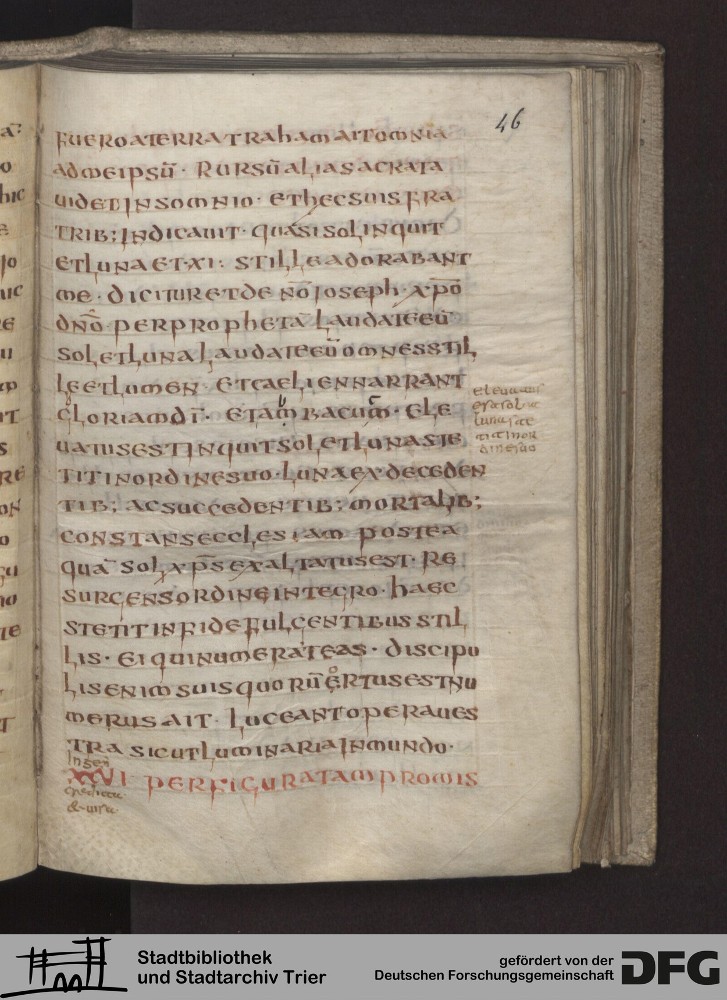 46
FUERO A TERRA TRAHAM AIT OMNIA
AD ME IPSŪ · RURSŪ ALIA SACRATA
UIDET IN SOMNIO · ET HEC SUIS FRA
TRIB; INDICAUIT · QUASI SOL INQUIT
ET LUNA ET · XI · STILLE ADORABANT
ME · DICITUR ET DE NŌ IOSEPH · XPŌ
DNŌ · PER PROPHETĀ LAUDATE EŪ
SOL ET LUNA LAUDATE EŪ OMNES STIL
LE ET LUMEN · ET CAELI ENNARRANT
GLORIAM DĪ · ET AMBACUM · ELE
UATUS EST INQUIT SOL ET LUNA STE
TIT IN ORDINE SUO · LUNA EX DECEDEN
TIB; AC SUCCEDENTIB; MORTALIB;
CONSTANS ECCLESIAM POSTEA
QUĀ SOL XP̄S EXALTATUS EST · RE
SURGENS ORDINE INTEGRO · HAEC
STETIT IN FIDE FULGENTIBUS STIL
LIS · EI QUI NUMERAT EAS · DISCIPU
LIS ENIM SUIS QUORŪ CERTUS EST NU
MERUS AIT · LUCEANT OPERA UES
TRA SICUT LUMINARIA IN MUNDO ·
XXVI PER FIGURATAM PROMIS
Stadtbibliothek
und Stadtarchiv Trier
gefördert von der
Deutschen Forschungsgemeinschaft
DFG